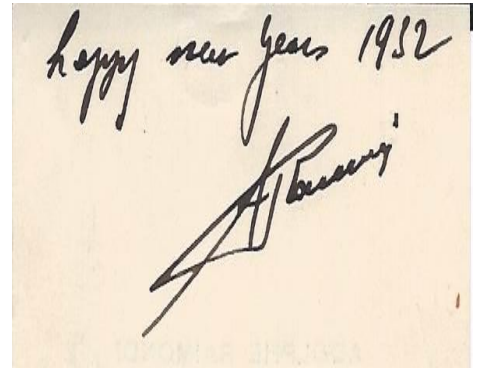 happy new years 1952